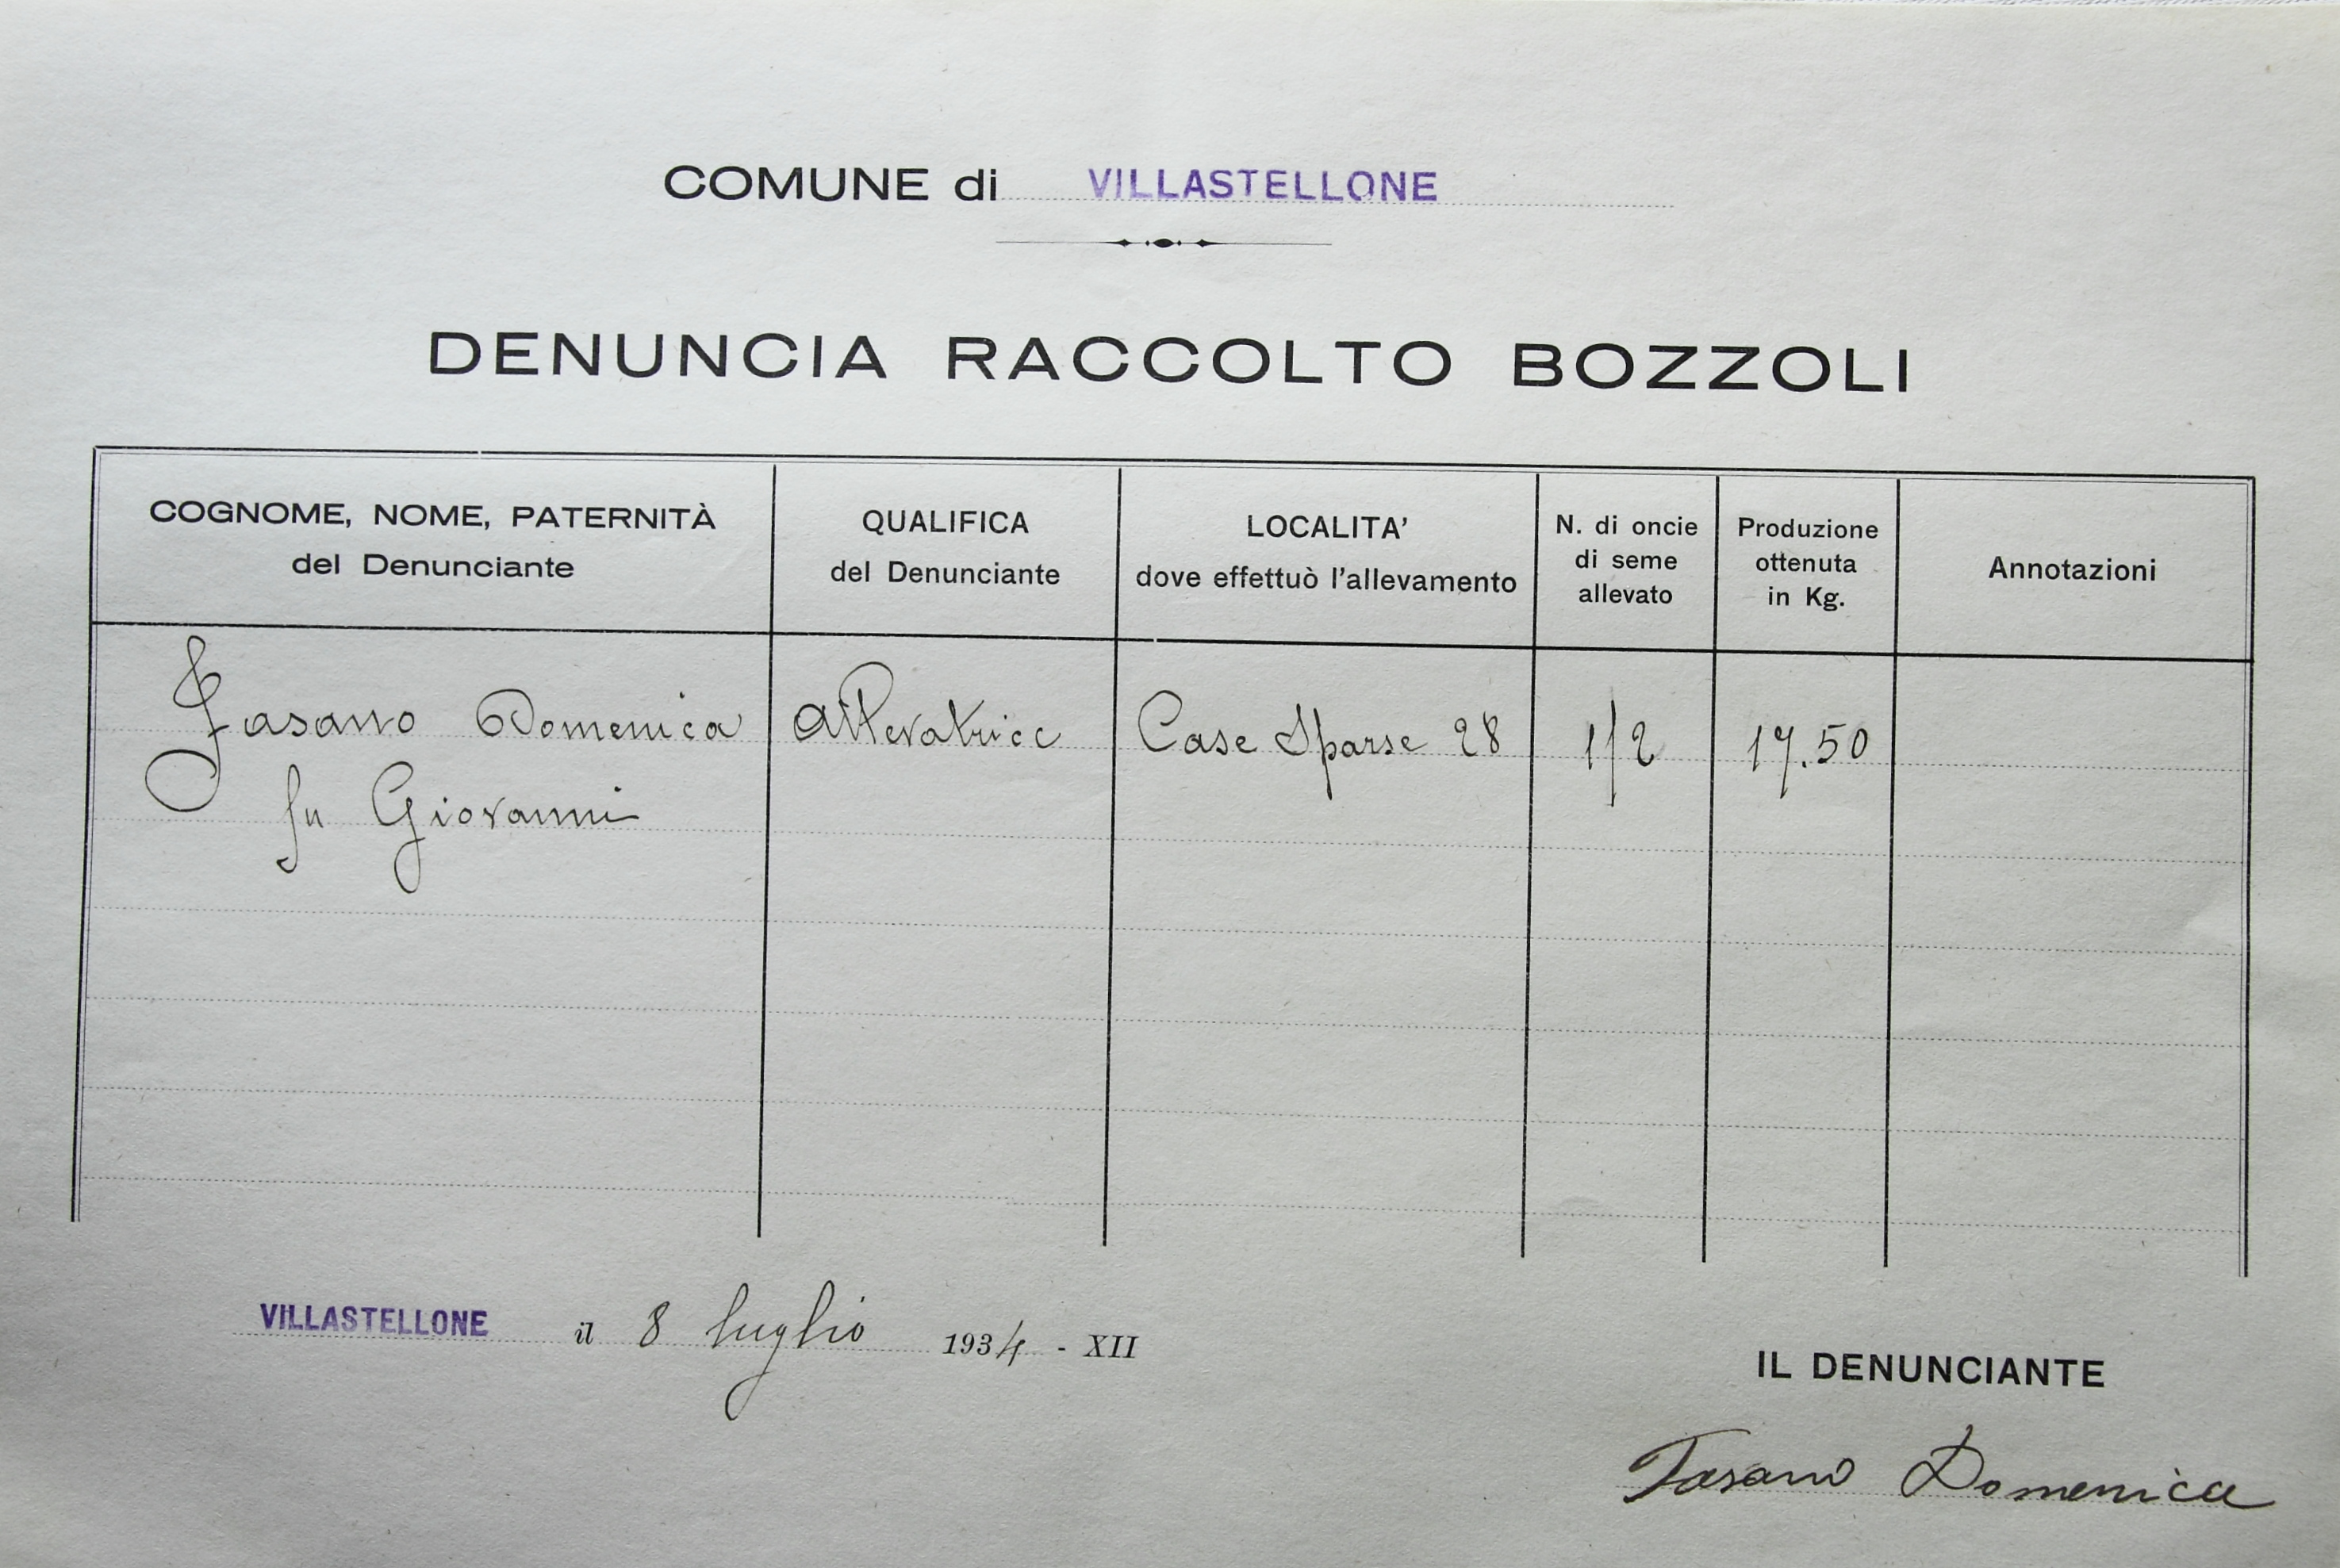 COMUNE di VILLASTELLONE
DENUNCIA RACCOLTO BOZZOLI
COGNOME, NOME, PATERNITÀ
del Denunciante
QUALIFICA
del Denunciante
LOCALITA'
dove effettuò l'allevamento
N. di oncie
di seme
allevato
Produzione
ottenuta
in Kg.
Annotazioni
Fasano Domenica Allevatrice Case Sparse 28 1/2 17.50
fu Giovanni
VILLASTELLONE il 8 luglio 1934 - XII
IL DENUNCIANTE
Fasano Domenica